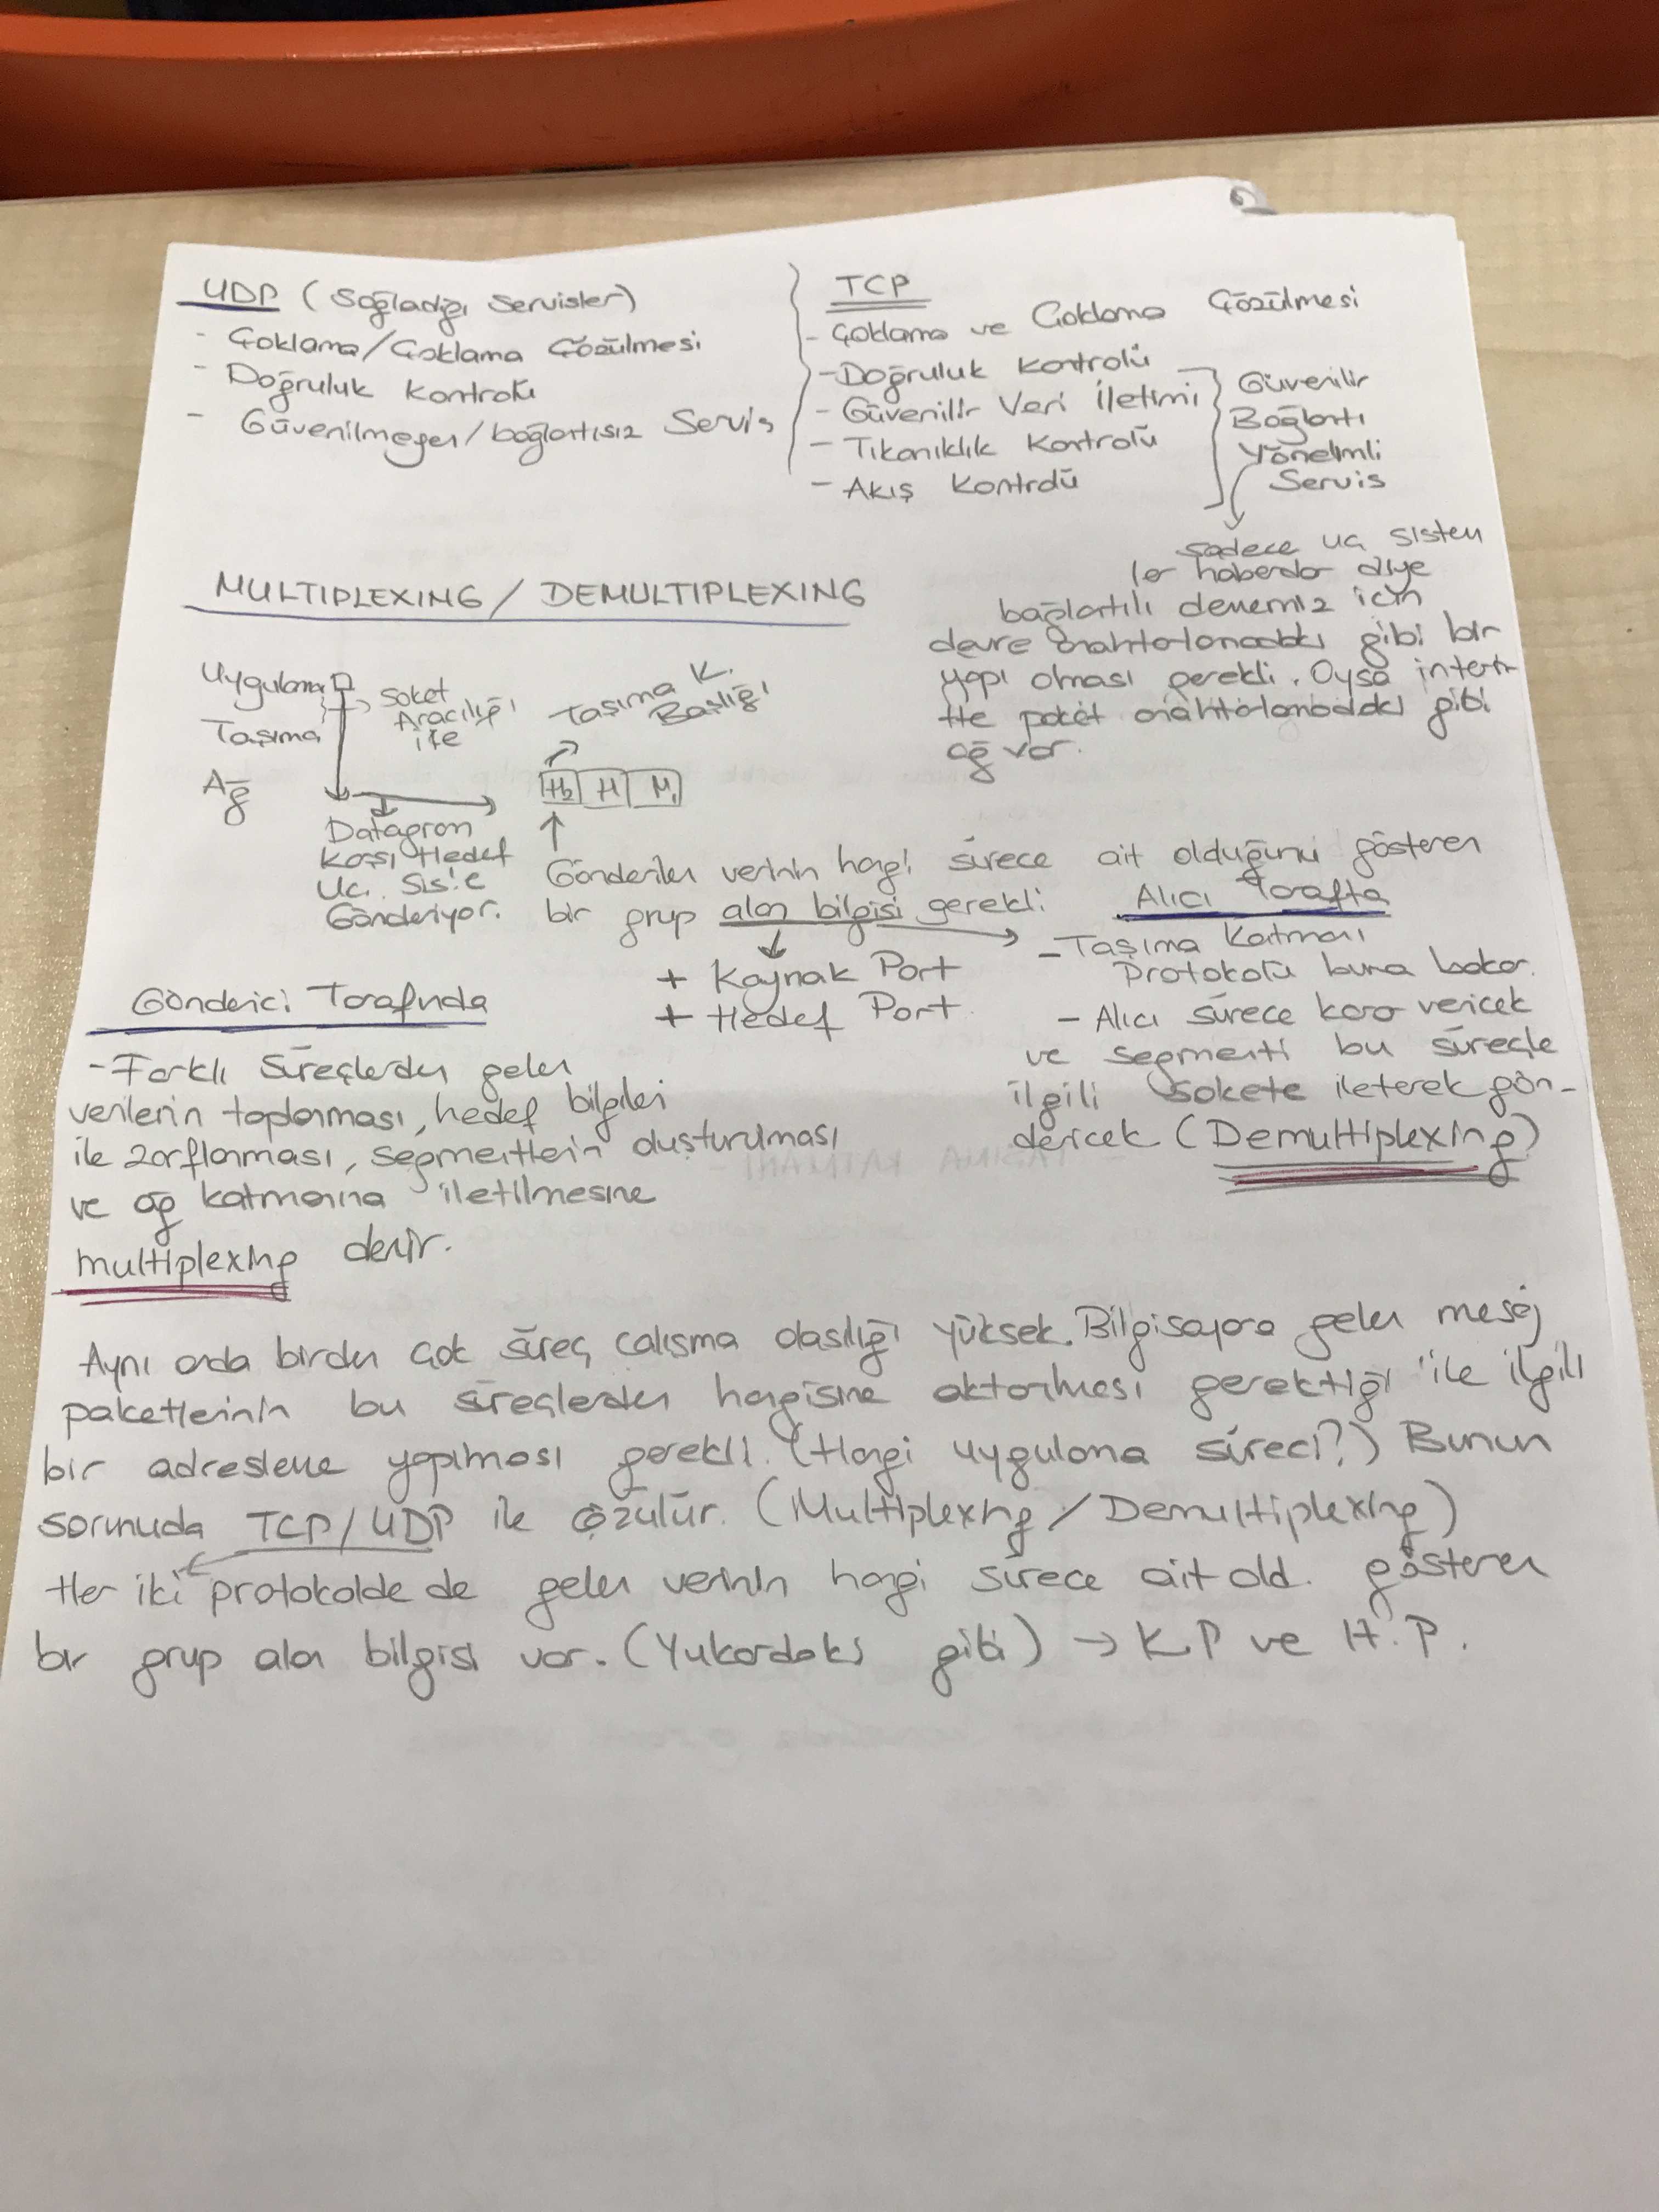 UDP (Sağladığı Servisler)
- Çoklama/Çoklama Çözülmesi
- Doğruluk Kontrolü
- Güvenilmeyen/bağlantısız Servis
TCP
- Çoklama ve Çoklama Çözülmesi
- Doğruluk Kontrolü
- Güvenilir Veri İletimi
- Tıkanıklık Kontrolü
- Akış Kontrolü
Güvenilir
Bağlantı
Yönelimli
Servis
sadece uç sistem
ler haberdar diye
bağlantılı dememiz için
devre anahtarlamadaki gibi bir
yapı olması gerekli. Oysa intern-
tte paket anahtarlamadaki gibi
ağ var.
MULTIPLEXING / DEMULTIPLEXING
Uygulama
Taşıma
Ağ
Soket
Aracılığı
ile
Taşıma K.
Başlığı
Hb H M
Datagram
Karşı Hedef
Uç Sis'e
Gönderiyor.
Gönderilen verinin hangi sürece ait olduğunu gösteren
bir grup alan bilgisi gerekli:
+ Kaynak Port
+ Hedef Port
Alıcı Tarafta
- Taşıma Katmanı
Protokolü buna bakar.
- Alıcı sürece karar vericek
ve segmenti bu süreçle
ilgili sokete ileterek gön-
dericek (Demultiplexing)
Gönderici Tarafında
- Farklı Süreçlerden gelen
verilerin toplanması, hedef bilgileri
ile zarflanması, segmentlerin oluşturulması
ve ağ katmanına iletilmesine
multiplexing denir.
Aynı anda birden çok süreç çalışma olasılığı yüksek. Bilgisayara gelen mesaj
paketlerinin bu süreçlerden hangisine aktarılması gerektiği ile ilgili
bir adresleme yapılması gerekli. (Hangi uygulama süreci?) Bunun
sorunuda TCP/UDP ile çözülür. (Multiplexing / Demultiplexing)
Her iki protokolde de gelen verinin hangi sürece ait old. gösteren
bir grup alan bilgisi var. (Yukardaki gibi) → K.P ve H.P.